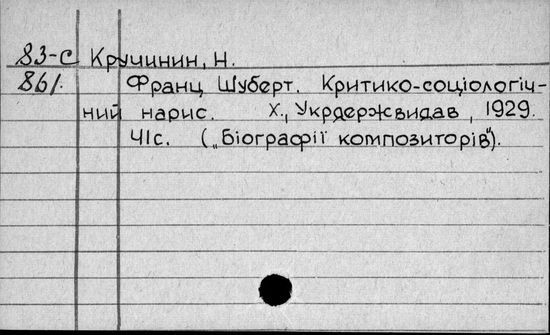 83-С Кручинин, Н.
861. Франц Шуберт. Критико-соціологіч-
ний нарис. Х., Укрдержвидав, 1929.
41с. („Біографії композиторів").